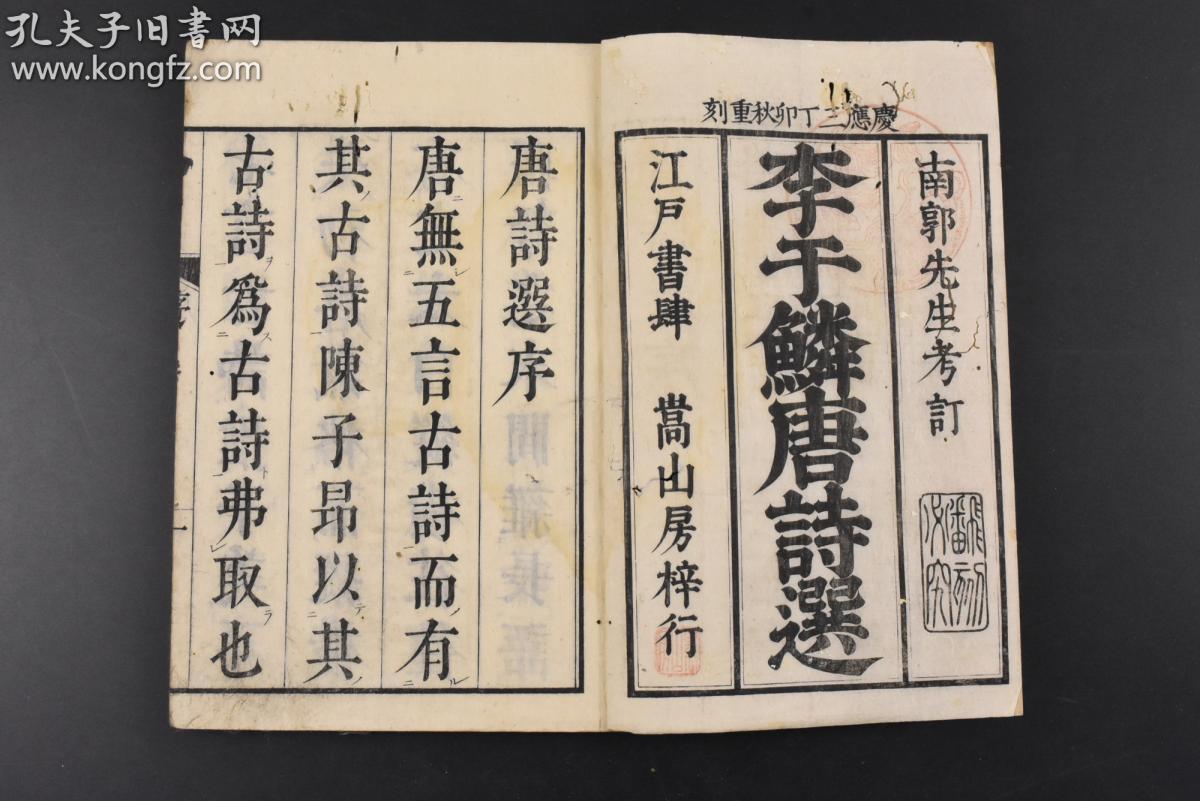 孔夫子旧书网
www.kongfz.com
慶應三丁卯秋重刻
南郭先生考訂
李于鱗唐詩選
江戸書肆 嵩山房梓行
唐詩選序
唐無五言古詩而有
其古詩陳子昂以其
古詩爲古詩弗取也
序